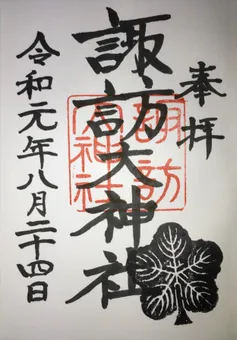 奉拝
諏訪大神社
諏訪大神社
令和元年八月二十四日